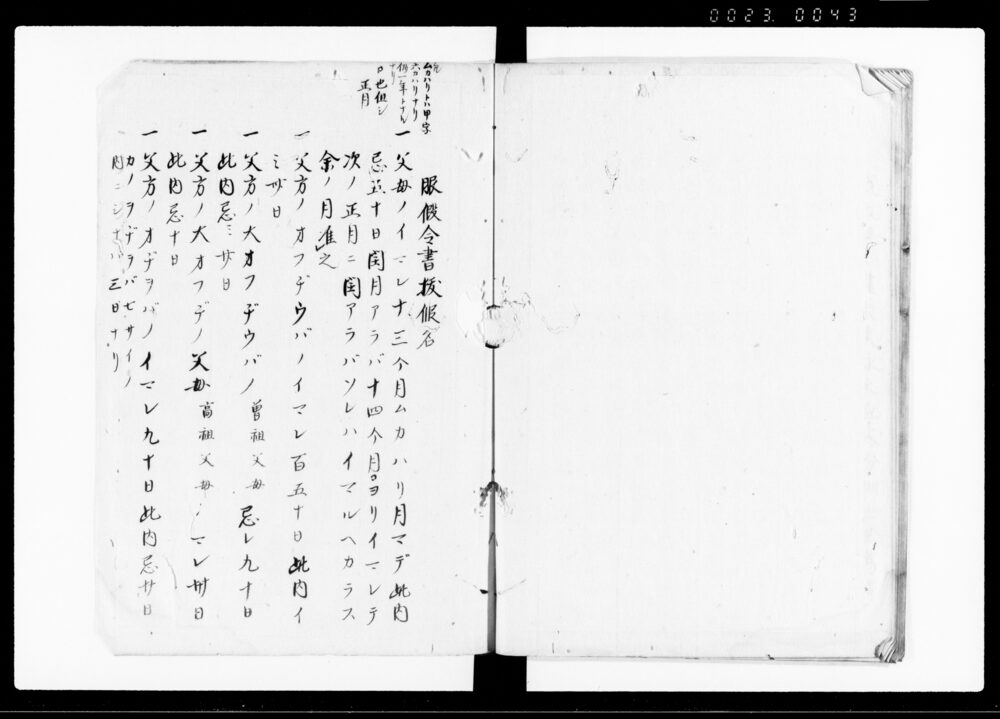 0023. 0043
ムカハリトハ甲字
六カハリナリ
但一年トナル
ナリ
日也但シ
正月
服假令書抜仮名
一 父母ノイミレ十三个月ムカハリ月マデ此内
忌五十日閏月アラバ十四个月。ヨリイマレテ
次ノ正月ニ閏アラバソレハイマルヘカラス
余ノ月准之
一 父方ノオフヂウバノイマレ百五十日此内イ
ミ卅日
一 父方ノ大オフヂウバノ 曾祖父母 忌レ九十日
此内忌ミ廿日
一 父方ノ大オフヂノ父母 高祖父母 イマレ卅日
此内忌十日
一 父方ノオヂヲバノイマレ九十日此内忌廿日
カノヲヂヲバ七サイノ
内ニシナバ三日ナリ